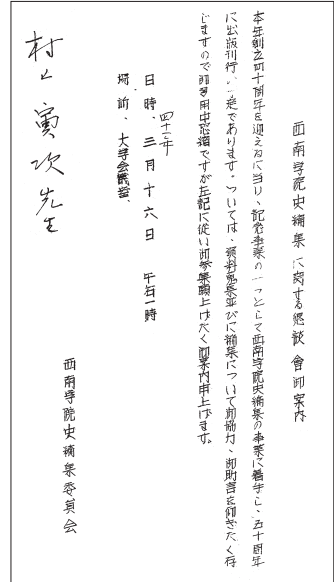 西南学院史編集に関する懇談會御案内
本年創立四十周年を迎えるに当り、記念事業の一つとして西南学院史編集の事業に着手し、五十周年
に出版刊行の予定であります。ついては、資料蒐集並びに編集について御協力、御助言を仰ぎたく存
じますので御多用中恐縮ですが左記に従い御参集願上げたく御案内申上げます。
四十一年
日時、三月十六日 午后一時
場所、大学会議室、
西南学院史編集委員会
村上寅次先生